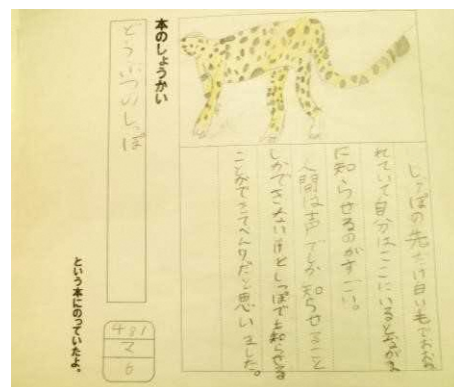 本のしょうかい
どうぶつのしっぽ
という本にのっていたよ。
481
マ
6
しっぽの先だけ白い毛でおおわ
れていて自分はここにいると
に知らせるのがすごい。
人間は声でしか知らせること
しかできないけどしっぽでも知らせる
ことができてべんりだと思いました。